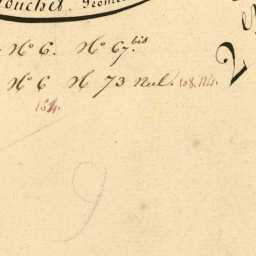 ouchet. Géomè
N° 6. N° 67.bis
N° 6 N 73 nul. 108. 114.
134.
9
2